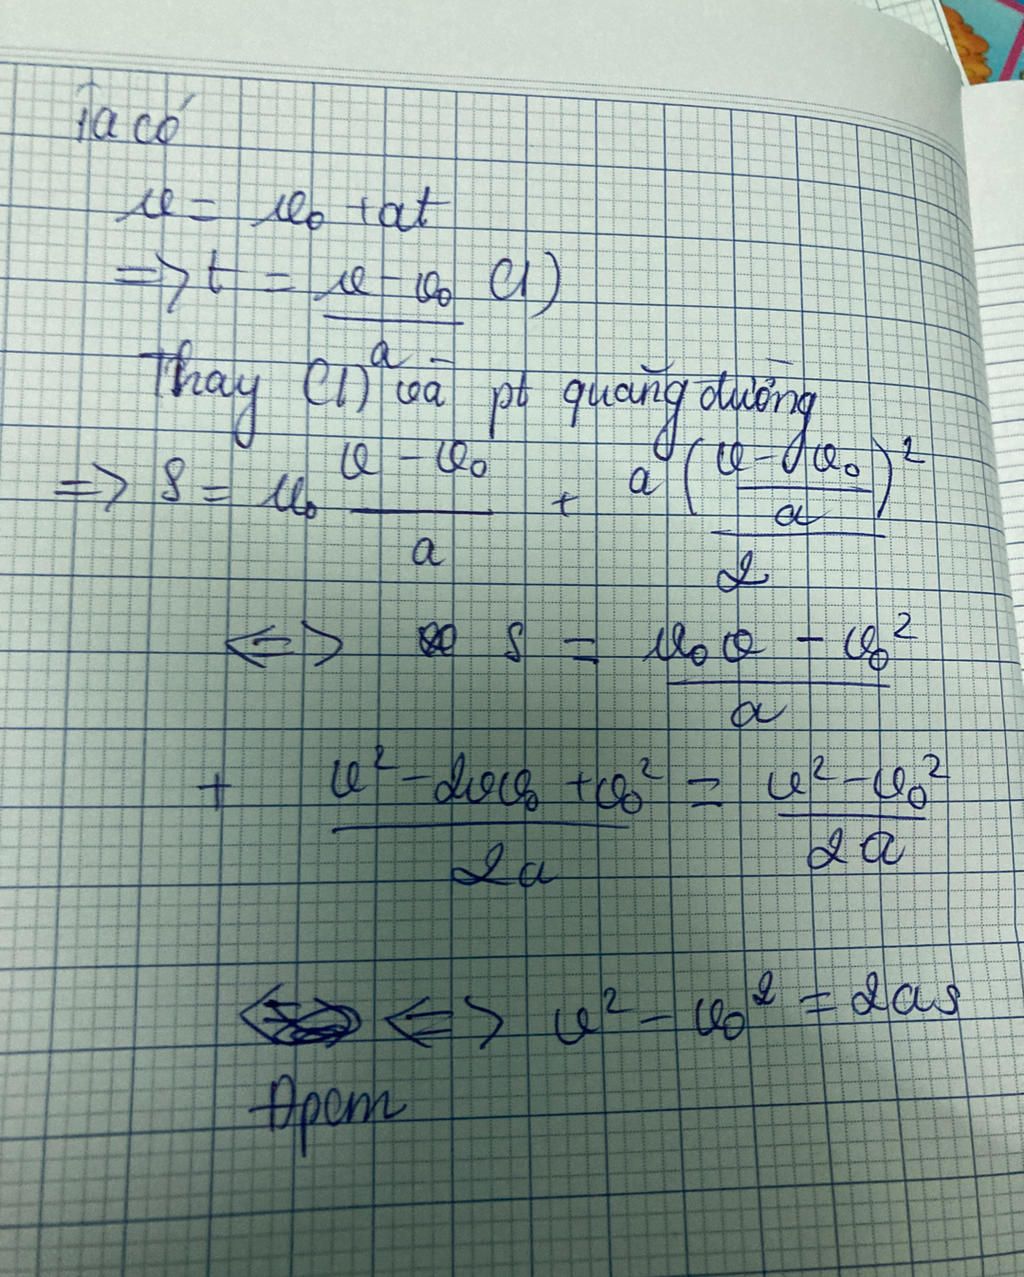 Ta có
v = v₀ + at
=> t = (v - v₀)/a (1)
Thay (1) và pt quãng đường
=> S = v₀ (v - v₀)/a + a((v - v₀)/a)²/2
<=> s = (v₀v - v₀²)/a
+ (v² - 2vv₀ + v₀²)/2a = (v² - v₀²)/2a
<=> v² - v₀² = 2as
Đpcm